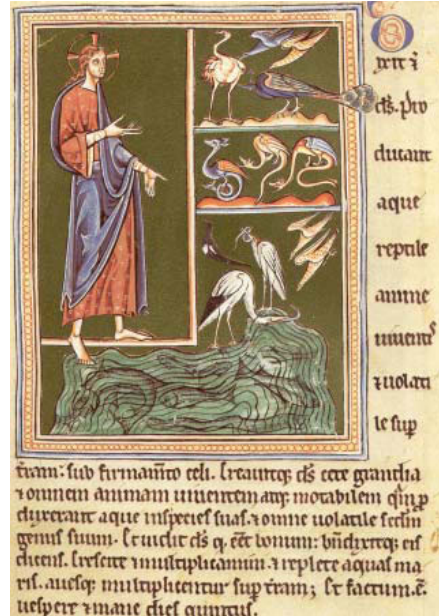 O
xit &
ds. Pro
ducant
aque
reptile
anime
uiuentis
& uolati
le sup
terram: sub firmamto celi. Creauitq; ds cete grandia
& omnem animam uiuentem atq; motabilem qm p
duxerant aque in species suas. & omne uolatile sedm
genus suum. Et uidit ds q. eet bonum: bndixitq; eis
dicens. Crescite & multiplicamini. & replete aquas ma
ris. auesq; multiplicentur sup terram; Et factum. e.
uespere & mane dies quintus.